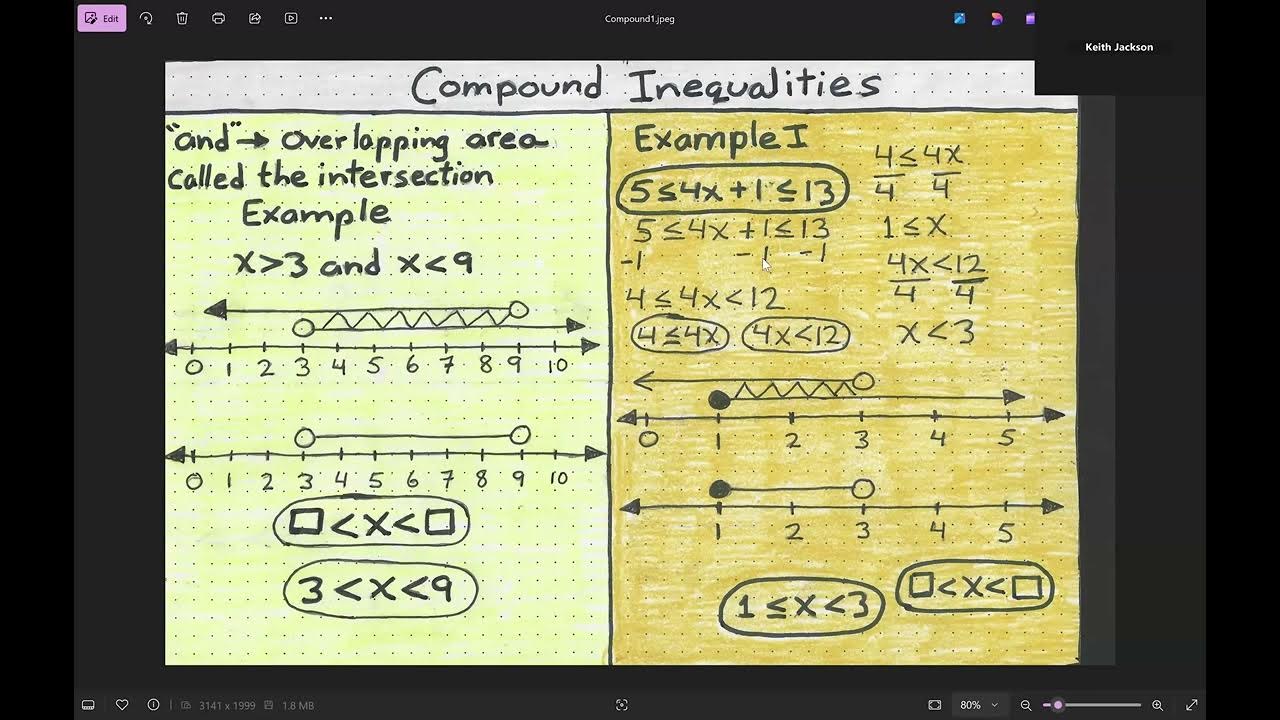 Edit
Compound1.jpeg
Keith Jackson
Compound Inequalities
"and" → Overlapping area
called the intersection
Example
x>3 and x<9
0 1 2 3 4 5 6 7 8 9 10
0 1 2 3 4 5 6 7 8 9 10
□<x<□
3<x<9
Example I
5≤4x+1≤13
5≤4x+1≤13
-1 -1 -1
4≤4x<12
4≤4x 4x<12
4≤4x
4 4
1≤x
4x<12
4 4
x<3
0 1 2 3 4 5
1 2 3 4 5
1≤x<3
□<x<□
3141 x 1999 1.8 MB
80%